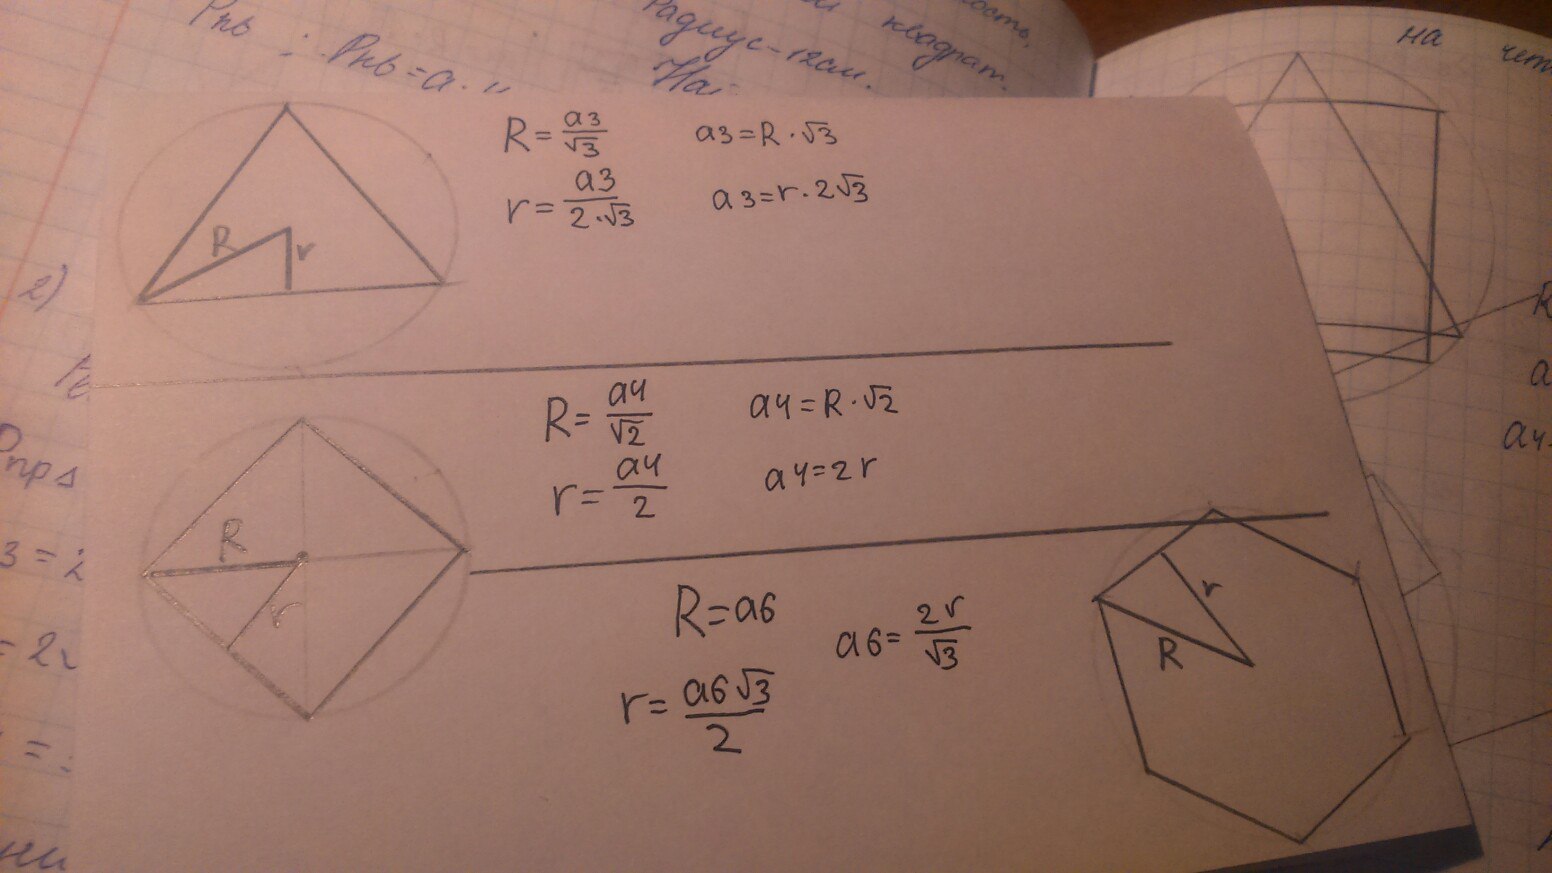 Pпв
Pпв = a.
Радиус-12см.
квадрат.
На
на
R = a3/√3    a3 = R · √3
r = a3/(2·√3)    a3 = r · 2√3
R r
2)
R = a4/√2    a4 = R · √2
r = a4/2    a4 = 2r
R
r
R = a6    a6 = 2r/√3
r = a6√3/2
r
R
Pпр
3 =
= 2r
R
a
a4